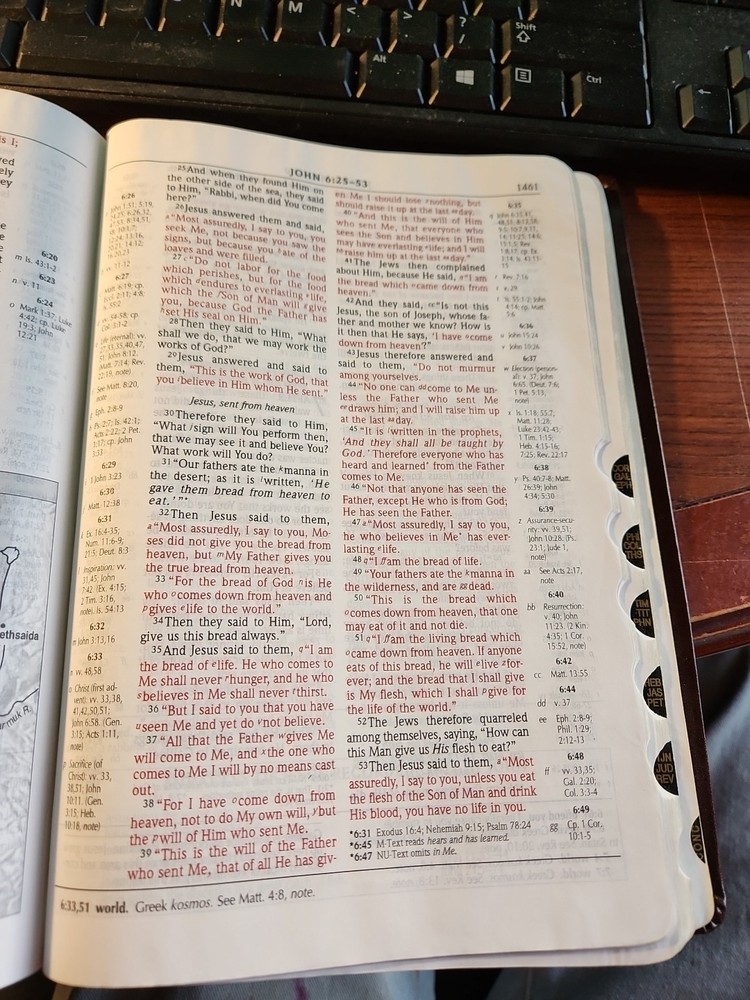 N
M
<
,
>
.
?
/
Shift
Alt
Ctrl
s I;
6:20
m Is. 43:1-2
6:23
n v. 11
6:24
o Mark 1:37; Luke
4:42; cp. Luke
19:3; John
12:21
ethsaida
JOHN 6:25–53
1461
6:26
6:27
Eph. 2:8-9
6:29
1 John 3:23
6:30
Matt. 12:38
6:31
Ex. 16:4-35;
Num. 11:6-9;
21:5; Deut. 8:3
Inspiration: vv.
31,45; John
7:42 (Ex. 4:15;
2 Tim. 3:16,
note). Is. 54:13
6:32
m John 3:13,16
6:33
n vv. 48,58
o Christ (first ad-
vent): vv. 33,38,
41,42,50,51;
John 6:58. (Gen.
3:15; Acts 1:11,
note)
p Sacrifice (of
Christ): vv. 33,
38,51; John
10:11. (Gen.
3:15; Heb.
10:18, note)
25And when they found Him on
the other side of the sea, they said
to Him, “Rabbi, when did You come
here?”
26Jesus answered them and said,
q“Most assuredly, I say to you, you
seek Me, not because you saw the
signs, but because you ate of the
loaves and were filled.
27 “Do not labor for the food
which perishes, but for the food
which endures to everlasting life,
which the Son of Man will give
you, because God the Father has
set His seal on Him.”
28Then they said to Him, “What
shall we do, that we may work the
works of God?”
29Jesus answered and said to
them, “This is the work of God, that
you believe in Him whom He sent.”
Jesus, sent from heaven
30Therefore they said to Him,
“What sign will You perform then,
that we may see it and believe You?
What work will You do?
31“Our fathers ate the kmanna in
the desert; as it is written, ‘He
gave them bread from heaven to
eat.’*”
32Then Jesus said to them,
a“Most assuredly, I say to you, Mo-
ses did not give you the bread from
heaven, but mMy Father gives you
the true bread from heaven.
33 “For the bread of God nis He
who ocomes down from heaven and
pgives elife to the world.”
34Then they said to Him, “Lord,
give us this bread always.”
35And Jesus said to them, q“I am
the bread of elife. He who comes to
Me shall never rhunger, and he who
sbelieves in Me shall never tthirst.
36 “But I said to you that you have
useen Me and yet do vnot believe.
37 “All that the Father wgives Me
will come to Me, and xthe one who
comes to Me I will by no means cast
out.
38 “For I have ocome down from
heaven, not to do My own will, ybut
the pwill of Him who sent Me.
39 “This is the will of the Father
who sent Me, that of all He has giv-
en Me I should lose nothing, but
should raise it up at the last day.
40 “And this is the will of Him
who sent Me, that everyone who
sees the Son and believes in Him
may have everlasting life; and I will
raise him up at the last day.”
41The Jews then complained
about Him, because He said, “I am
the bread which came down from
heaven.”
42And they said, “Is not this
Jesus, the son of Joseph, whose fa-
ther and mother we know? How is
it then that He says, ‘I have come
down from heaven’?”
43Jesus therefore answered and
said to them, “Do not murmur
among yourselves.
44 “No one can ddcome to Me un-
less the Father who sent Me
eedraws him; and I will raise him up
at the last day.
45 “It is written in the prophets,
‘And they shall all be taught by
God.’ Therefore everyone who has
heard and learned* from the Father
comes to Me.
46 “Not that anyone has seen the
Father, except He who is from God;
He has seen the Father.
47 a“Most assuredly, I say to you,
he who believes in Me* has ever-
lasting elife.
48 “I am the bread of life.
49 “Your fathers ate the kmanna in
the wilderness, and are dead.
50 “This is the bread which
ocomes down from heaven, that one
may eat of it and not die.
51 “I am the living bread which
ocame down from heaven. If anyone
eats of this bread, he will elive for-
ever; and the bread that I shall give
is My flesh, which I shall pgive for
the life of the world.”
52The Jews therefore quarreled
among themselves, saying, “How can
this Man give us His flesh to eat?”
53Then Jesus said to them, a“Most
assuredly, I say to you, unless you eat
the flesh of the Son of Man and drink
His blood, you have no life in you.
*6:31 Exodus 16:4; Nehemiah 9:15; Psalm 78:24
*6:45 M-Text reads hears and has learned.
*6:47 NU-Text omits in Me.
6:35
r Rev. 7:16
6:36
u John 15:24
v John 10:26
6:37
w Election (person-
al): v. 37; John
6:65. (Deut. 7:6;
1 Pet. 5:13,
note)
x Is. 1:18; 55:7;
Matt. 11:28;
Luke 23:42-43;
1 Tim. 1:15;
Heb. 4:15-16;
7:25; Rev. 22:17
6:38
y Ps. 40:7-8; Matt.
26:39; John
4:34; 5:30
6:39
z Assurance-secu-
rity: vv. 39,51;
John 10:28. (Ps.
23:1; Jude 1,
note)
aa See Acts 2:17,
note
6:40
bb Resurrection:
v. 40; John
11:23. (2 Kin.
4:35; 1 Cor.
15:52, note)
6:42
cc Matt. 13:55
6:44
dd v. 37
ee Eph. 2:8-9;
Phil. 1:29;
2:12-13
6:48
ff vv. 33,35;
Gal. 2:20;
Col. 3:3-4
6:49
gg Cp. 1 Cor.
10:1-5
6:33,51 world. Greek kosmos. See Matt. 4:8, note.
COR
GAL
EPH
PHI
COL
THS
TIM
TIT
PHN
HEB
JAS
PET
JN
JUD
REV
CONC